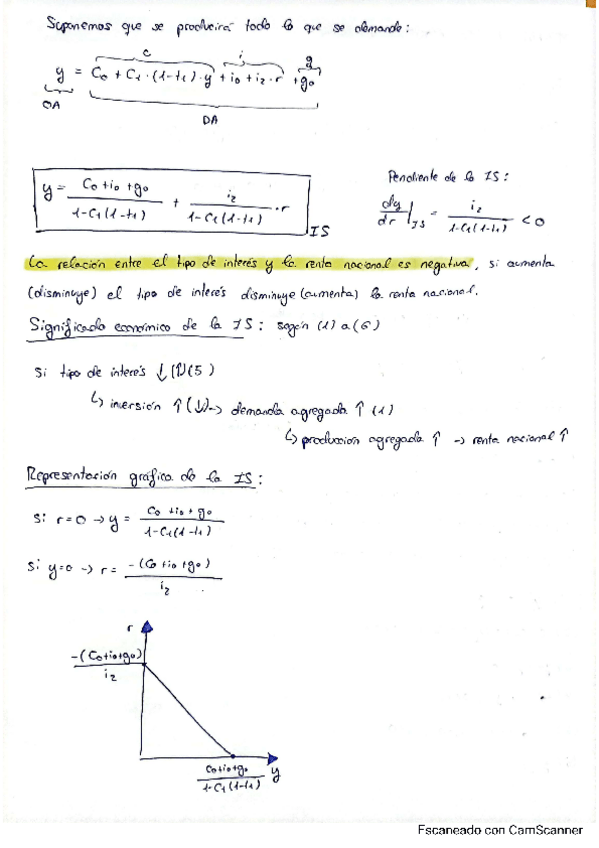 Suponemos que se producirá todo lo que se demande:
c i g
y = C0 + C1·(1-t1)·y + i0 + i2·r + g0
OA
DA
y = (C0 + i0 + g0)/(1-C1(1-t1)) + i2/(1-C1(1-t1)) · r IS
Pendiente de la IS:
dy/dr|IS = i2/(1-C1(1-t1)) < 0
La relación entre el tipo de interés y la renta nacional es negativa, si aumenta
(disminuye) el tipo de interés disminuye (aumenta) la renta nacional.
Significado económico de la IS: según (1) a (6)
Si tipo de interés ↓(↑)(5)
↳ inversión ↑(↓) → demanda agregada ↑ (1)
↳ producción agregada ↑ → renta nacional ↑
Representación gráfica de la IS:
Si r=0 → y = (C0 + i0 + g0)/(1-C1(1-t1))
Si y=0 → r = -(C0 + i0 + g0)/i2
r
-(C0+i0+g0)/i2
(C0+i0+g0)/(1-C1(1-t1)) y
Escaneado con CamScanner